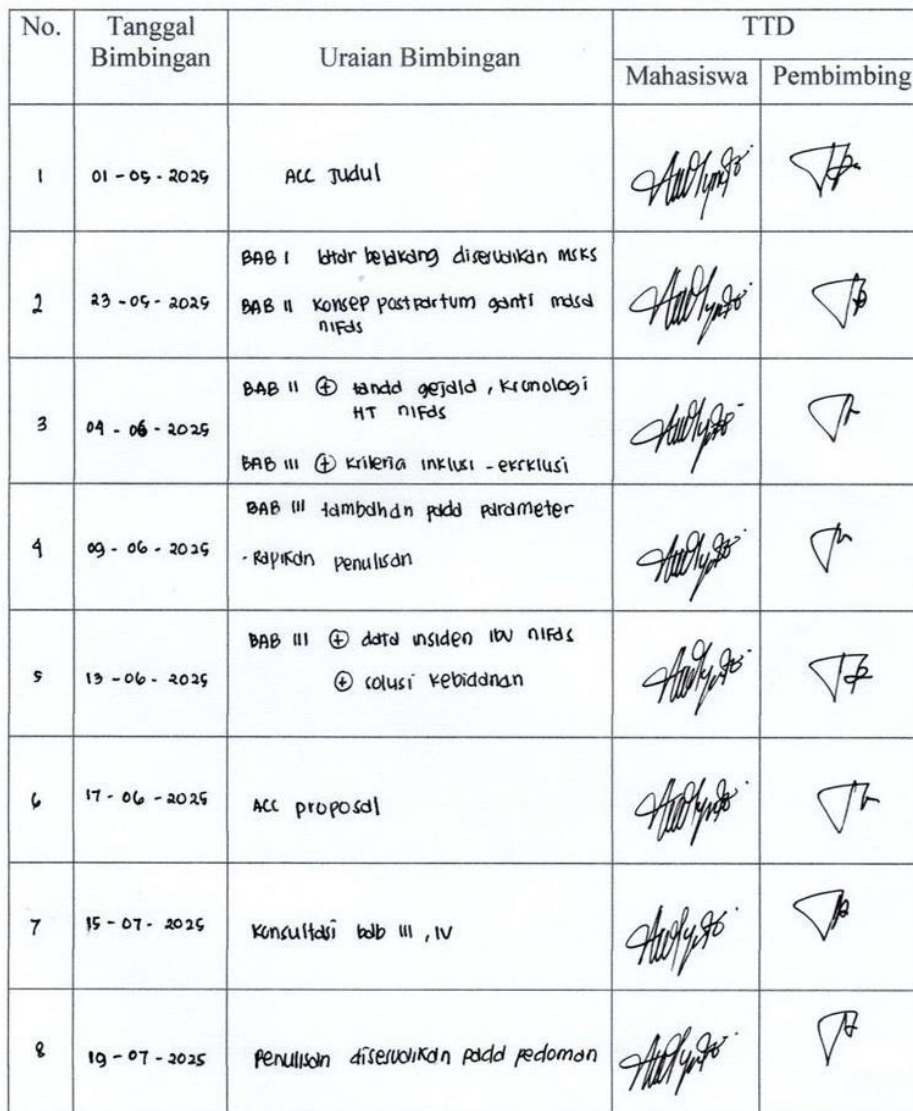 No. Tanggal Bimbingan Uraian Bimbingan TTD
Mahasiswa Pembimbing
1 01-05-2025 ACC Judul
2 23-05-2025 BAB I latar belakang disesuaikan MSKS
BAB II Konsep postpartum ganti masa
nifas
3 04-06-2025 BAB II ⊕ tanda gejala, kronologi
HT nifas
BAB III ⊕ kriteria inklusi - eksklusi
4 09-06-2025 BAB III tambahan pada parameter
- Rapikan penulisan
5 13-06-2025 BAB III ⊕ data insiden ibu nifas
⊕ solusi kebidanan
6 17-06-2025 ACC proposal
7 15-07-2025 Konsultasi bab III, IV
8 19-07-2025 Penulisan disesuaikan pada pedoman